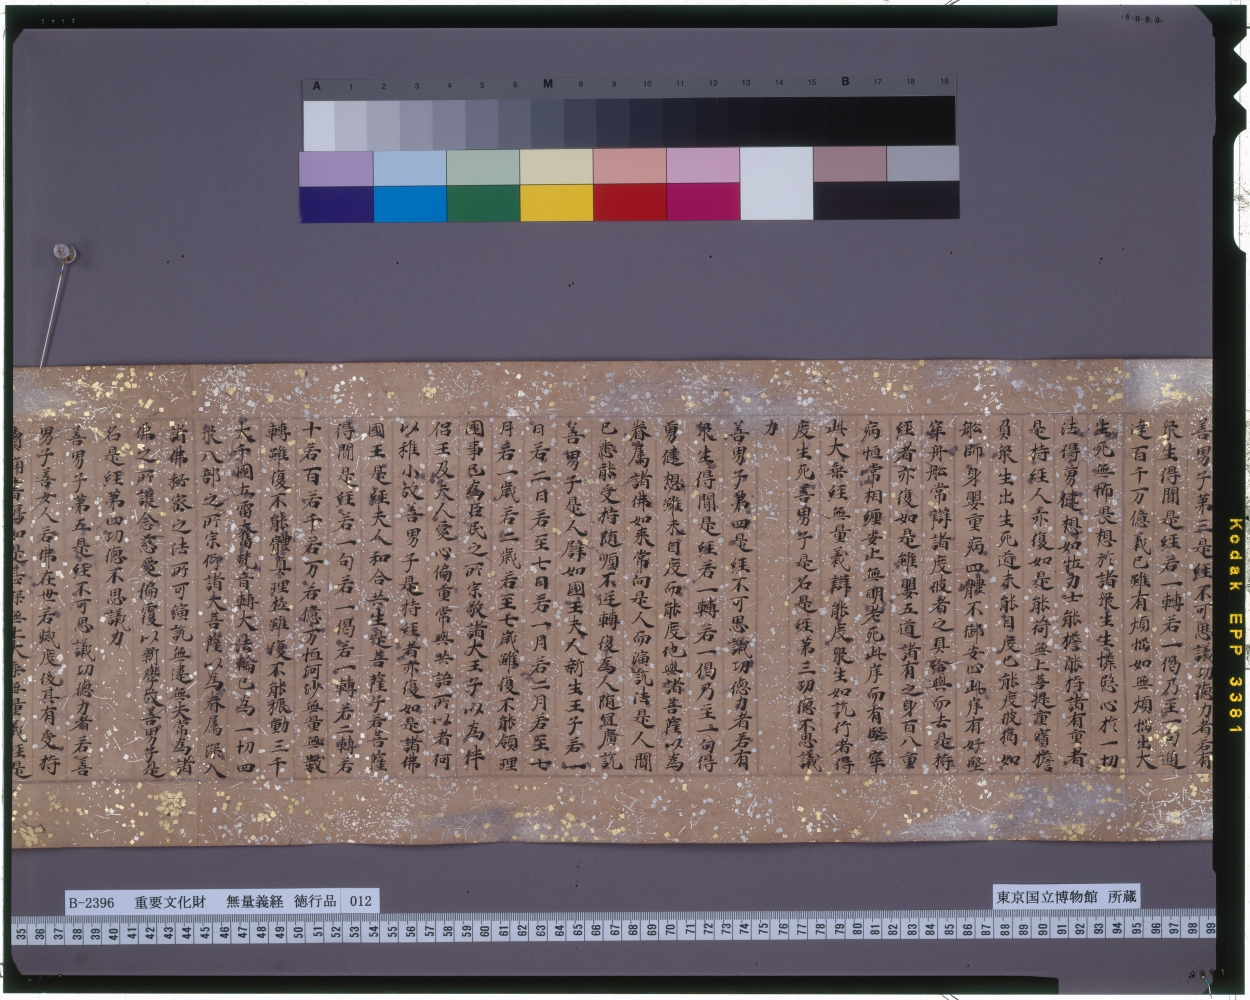 A 1 2 3 4 5 6 M 8 9 10 11 12 13 14 15 B 17 18 19
善男子第三是經不可思議功德力者若有
衆生得聞是經若一轉若一偈乃至一句通
達百千万億義已雖有煩惱如無煩惱出大
生死無怖畏想於諸衆生生憐愍心於一切
法得勇健想如壯力士能擔能持諸有重者
是持經人亦復如是能荷無上菩提重寶擔
負衆生出生死道未能自度已能度彼猶如
船師身嬰重病四體不御安止此岸有好堅
牢舟船常辯諸度彼者之具給與而去是持
經者亦復如是雖嬰五道諸有之身百八重
病恒常相纏安止無明老死此岸而有堅牢
此大乘經無量義辯能度衆生如說行者得
度生死善男子是名是經第三功德不思議
力
善男子第四是經不可思議功德力者若有
衆生得聞是經若一轉若一偈乃至一句得
勇健想雖未自度而能度他與諸菩薩以為
眷属諸佛如來常向是人而演說法是人聞
已悉能受持随順不逆轉復為人随宜廣說
善男子是人譬如國王夫人新生王子若一
日若二日若至七日若一月若二月若至七
月若一歲若二歲若至七歲雖復不能領理
國事已為臣民之所宗敬諸大王子以為伴
侶王及夫人愛心偏重常與共語所以者何
以稚小故善男子是持經者亦復如是諸佛
國王是經夫人和合共生是菩薩子若菩薩
得聞是經若一句若一偈若一轉若二轉若
十若百若千若万若億万恒河沙無量無數
轉雖復不能體真理極雖復不能振動三千
大千國土雷奮梵音轉大法輪已為一切四
衆八部之所宗仰諸大菩薩以為眷属深入
諸佛秘密之法所可演說無違無失常為諸
佛之所護念慈愛偏覆以新學故善男子是
名是經第四功德不思議力
善男子第五是經不可思議功德力者若善
男子善女人若佛在世若滅度後其有受持
B-2396 重要文化財 無量義経 徳行品 012
東京国立博物館 所蔵
35 36 37 38 39 40 41 42 43 44 45 46 47 48 49 50 51 52 53 54 55 56 57 58 59 60 61 62 63 64 65 66 67 68 69 70 71 72 73 74 75 76 77 78 79 80 81 82 83 84 85 86 87 88 89 90 91 92 93 94 95 96 97 98 99
Kodak EPP 3381